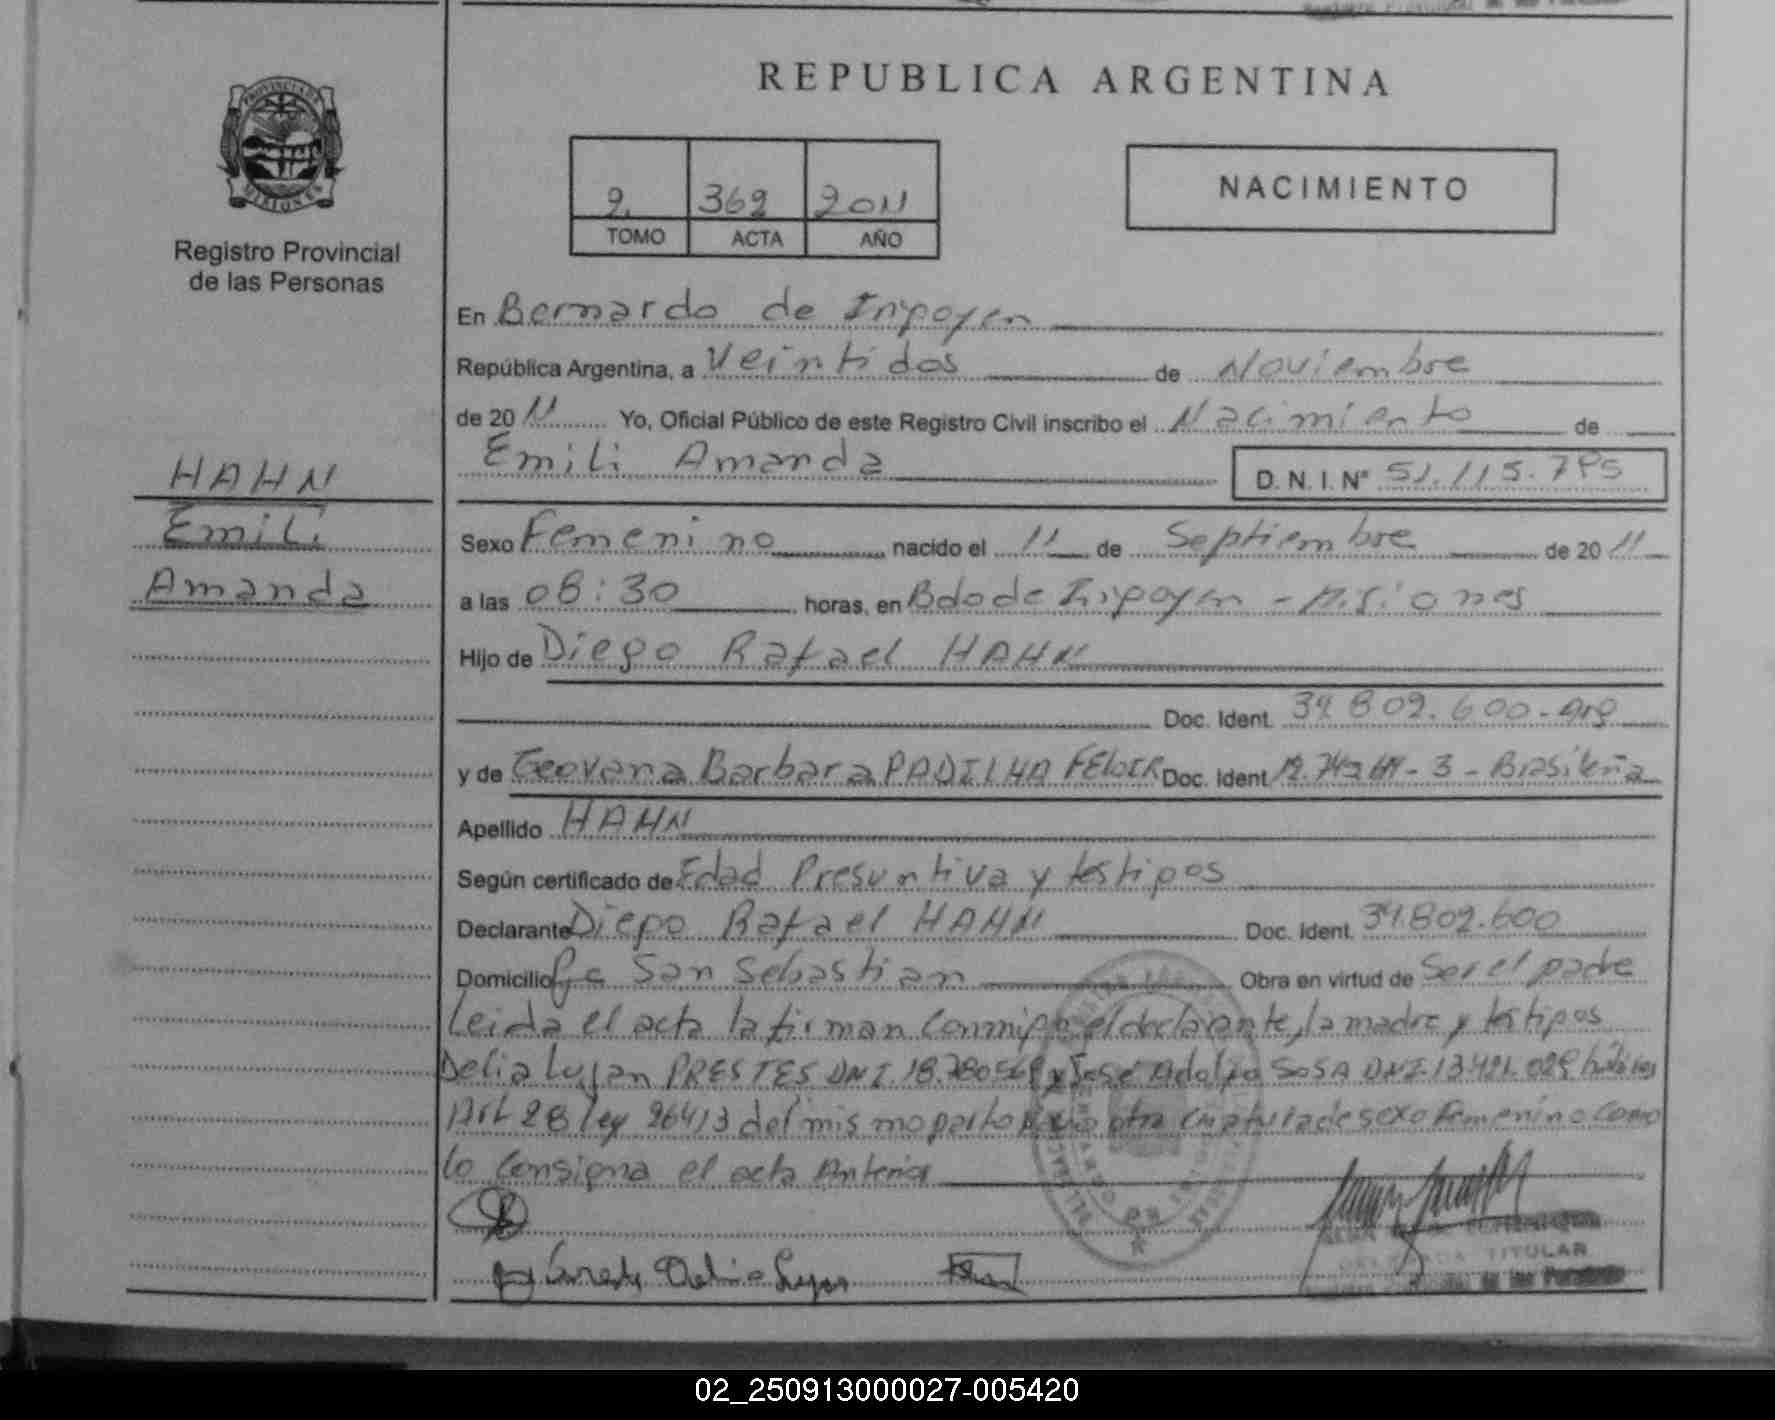 REPUBLICA ARGENTINA
PROVINCIA DE
MISIONES
Registro Provincial
de las Personas
2 362 2011
TOMO ACTA AÑO
NACIMIENTO
En Bernardo de Irigoyen
República Argentina, a Veintidos de Noviembre
de 20 11 Yo, Oficial Público de este Registro Civil inscribo el Nacimiento de
Emili Amanda D. N. I. Nº 51.115.795
HAHN
Emili
Amanda
Sexo Femenino nacido el 11 de Septiembre de 20 11
a las 08:30 horas, en Bdo de Irigoyen - Misiones
Hijo de Diego Rafael HAHN
Doc. Ident. 34.802.600 - arg
y de Geovana Barbara PADILHA Doc. Ident. - 3 - Brasileña
Apellido HAHN
Según certificado de Edad Presuntiva y testigos
Declarante Diego Rafael HAHN Doc. Ident. 34.802.600
Domicilio San Sebastian Obra en virtud de Ser el padre
Leida el acta la firman conmigo el declarante, la madre y testigos
Delia Lujan PRESTES DNI y Jose Adolfo SOSA DNI 13.421.029
Art 28 ley 26413 del mismo parto otra criatura de sexo Femenino como
lo consigna el acta Anterior
TITULAR
02_250913000027-005420